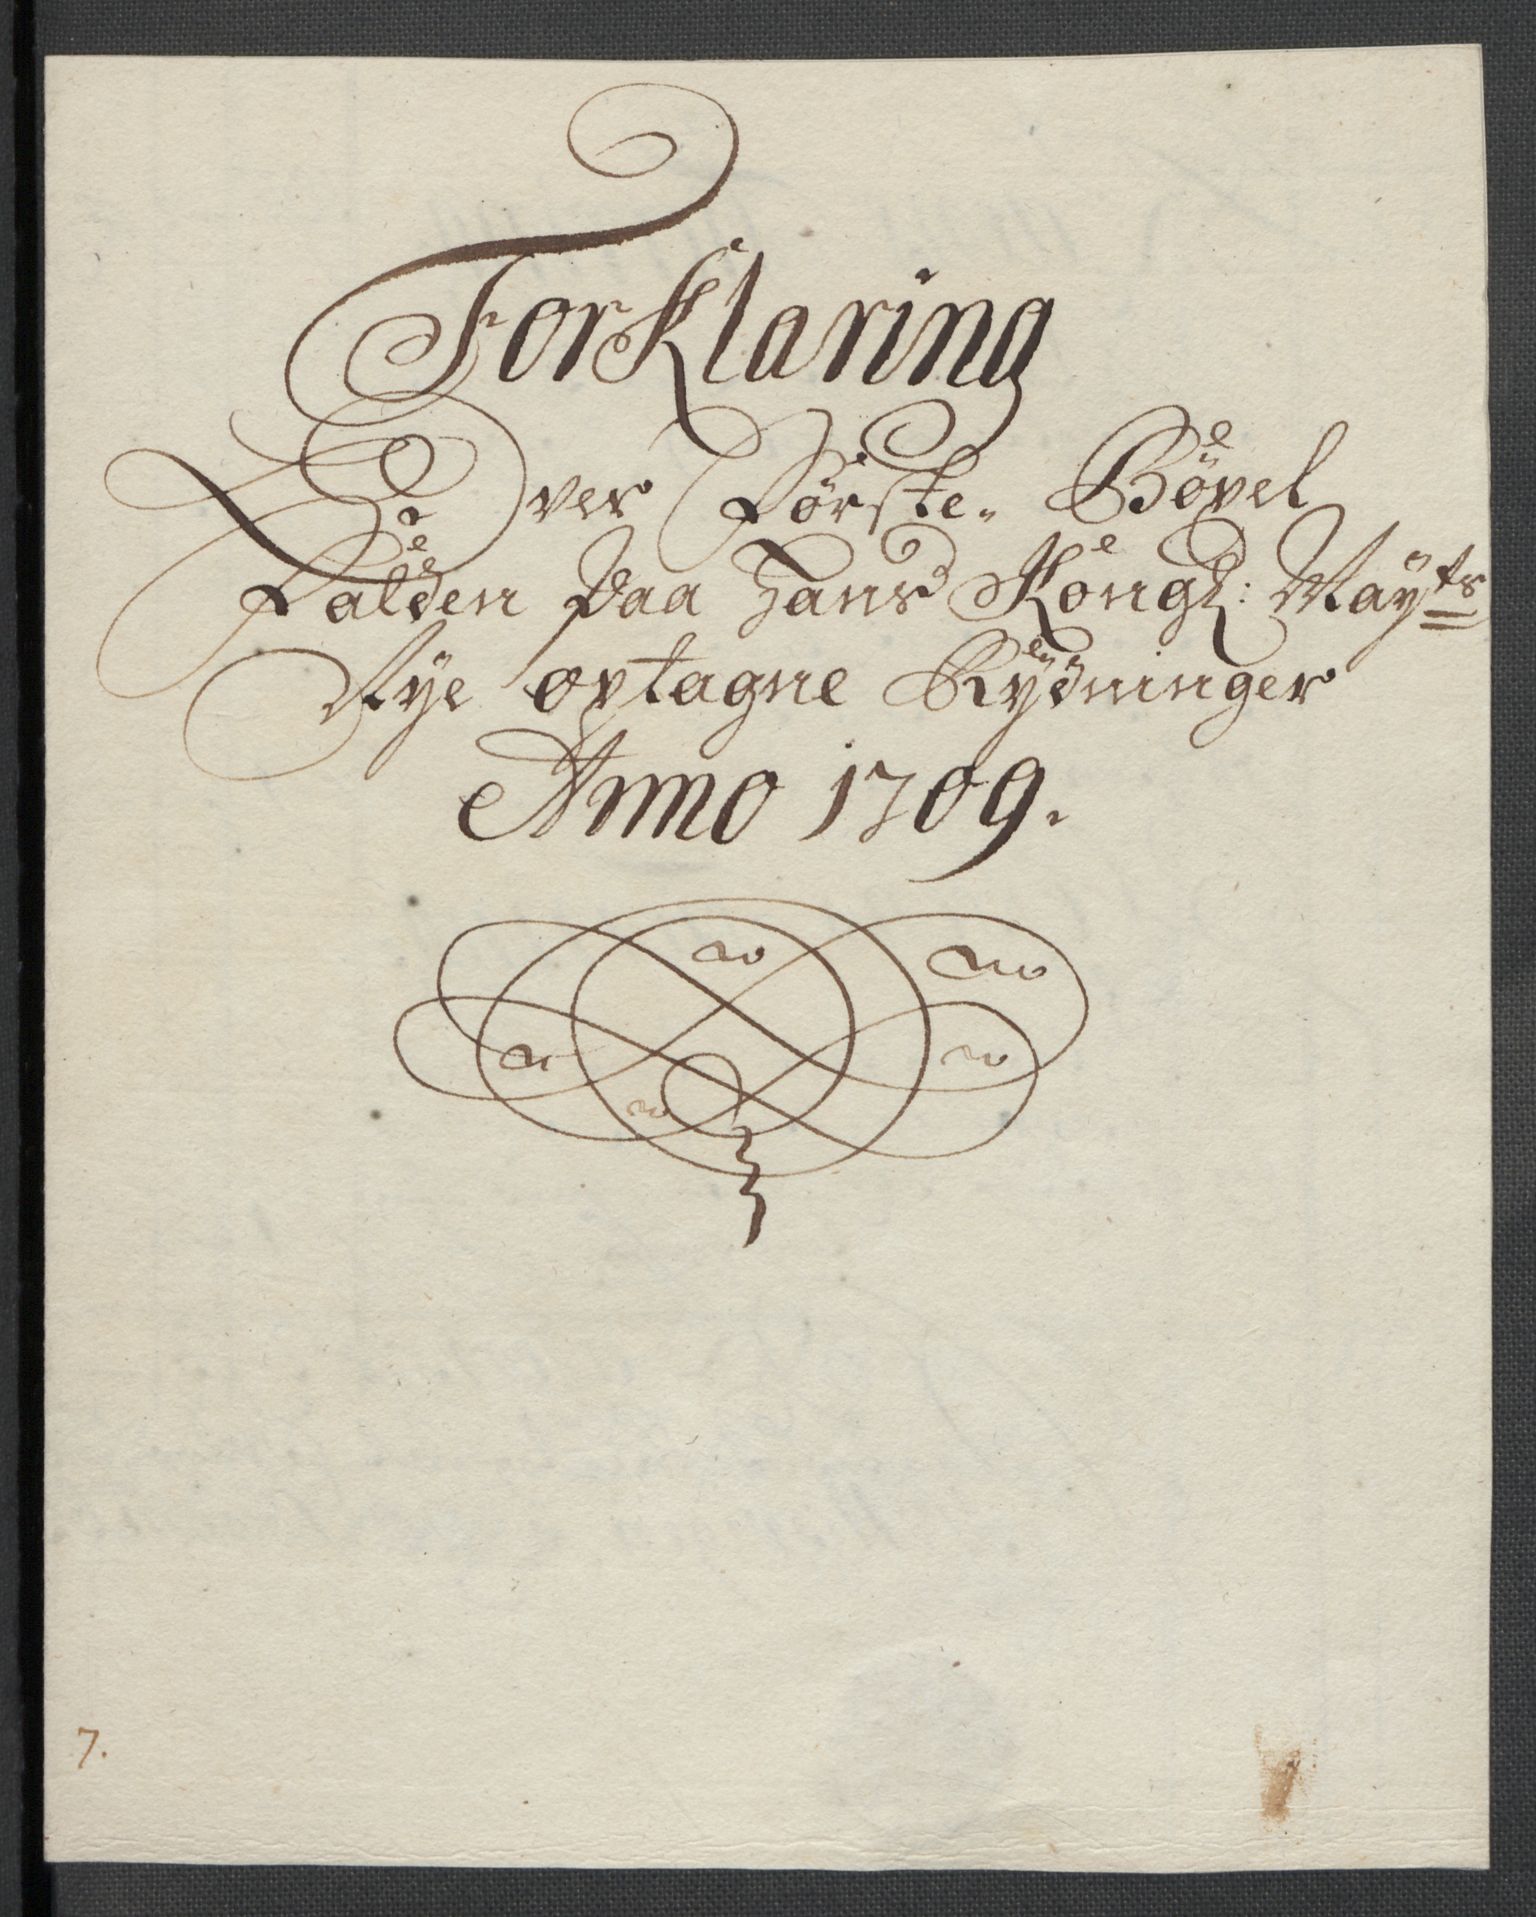 Forklaring
Over Første Bøxel
Falden paa Hans Kongl: Mayts
Nye optagne Rydninger
Anno 1709.
7.